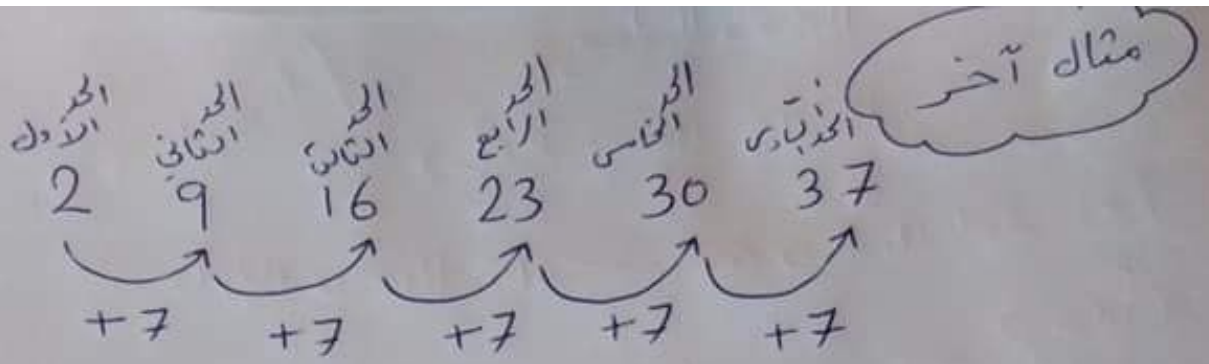 مثال آخر
الحد الأول الحد الثاني الحد الثالث الحد الرابع الحد الخامس
2 9 16 23 30 37
+7 +7 +7 +7 +7